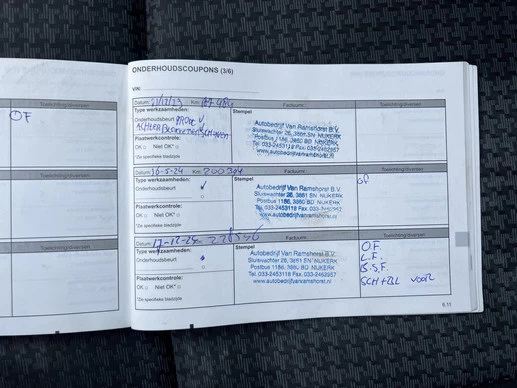 ONDERHOUDSCOUPONS (3/6)
VIN:
Toelichting/diversen
OF
Datum: Km: 187.484 Factuurnr.: Toelichting/diversen
Type werkzaamheden: Stempel
Onderhoudsbeurt GROTE V
ACHTER
Plaatwerkcontrole:
OK Niet OK*
*Zie specifieke bladzijde
Autobedrijf Van Ramshorst B.V.
Sluiswachter 28, 3861 SN NIJKERK
Postbus 1186, 3860 BD NIJKERK
Tel. 033-2453118 Fax. 033-2462957
www.autobedrijfvanramshorst.nl
Toelichting/diversen
Datum: 16-5-24 Km: 200394 Factuurnr.: Toelichting/diversen
Type werkzaamheden: Stempel
Onderhoudsbeurt ✓
Plaatwerkcontrole:
OK Niet OK*
*Zie specifieke bladzijde
Autobedrijf Van Ramshorst B.V.
Sluiswachter 28, 3861 SN NIJKERK
Postbus 1186, 3860 BD NIJKERK
Tel. 033-2453118 Fax. 033-2462957
www.autobedrijfvanramshorst.nl
of
Toelichting/diversen
Datum: 17-12-24 Factuurnr.: Toelichting/diversen
Type werkzaamheden: Stempel
Onderhoudsbeurt
Plaatwerkcontrole:
OK Niet OK*
*Zie specifieke bladzijde
Autobedrijf Van Ramshorst B.V.
Sluiswachter 28, 3861 SN NIJKERK
Postbus 1186, 3860 BD NIJKERK
Tel. 033-2453118 Fax. 033-2462957
www.autobedrijfvanramshorst.nl
O.F.
L.F.
B.S.F.
SCH+BL VOOR
6.11